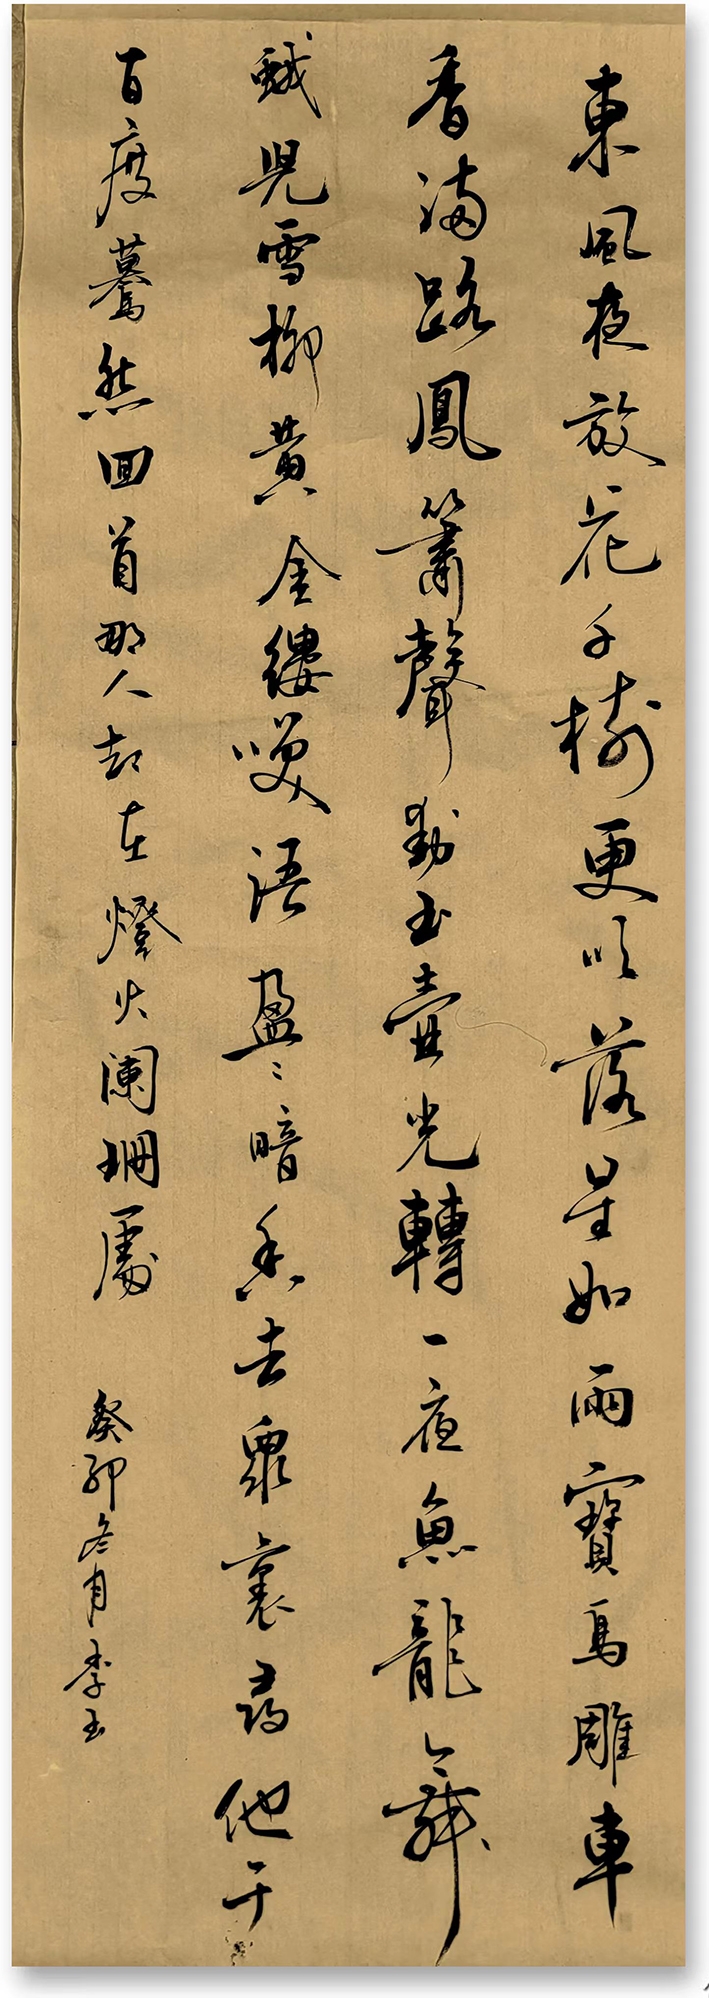 東風夜放花千樹更吹落星如雨寶馬雕車
香滿路鳳簫聲動玉壺光轉一夜魚龍舞
蛾兒雪柳黃金縷笑語盈〻暗香去眾裏尋他千
百度驀然回首那人却在燈火闌珊處
癸卯冬月李玉